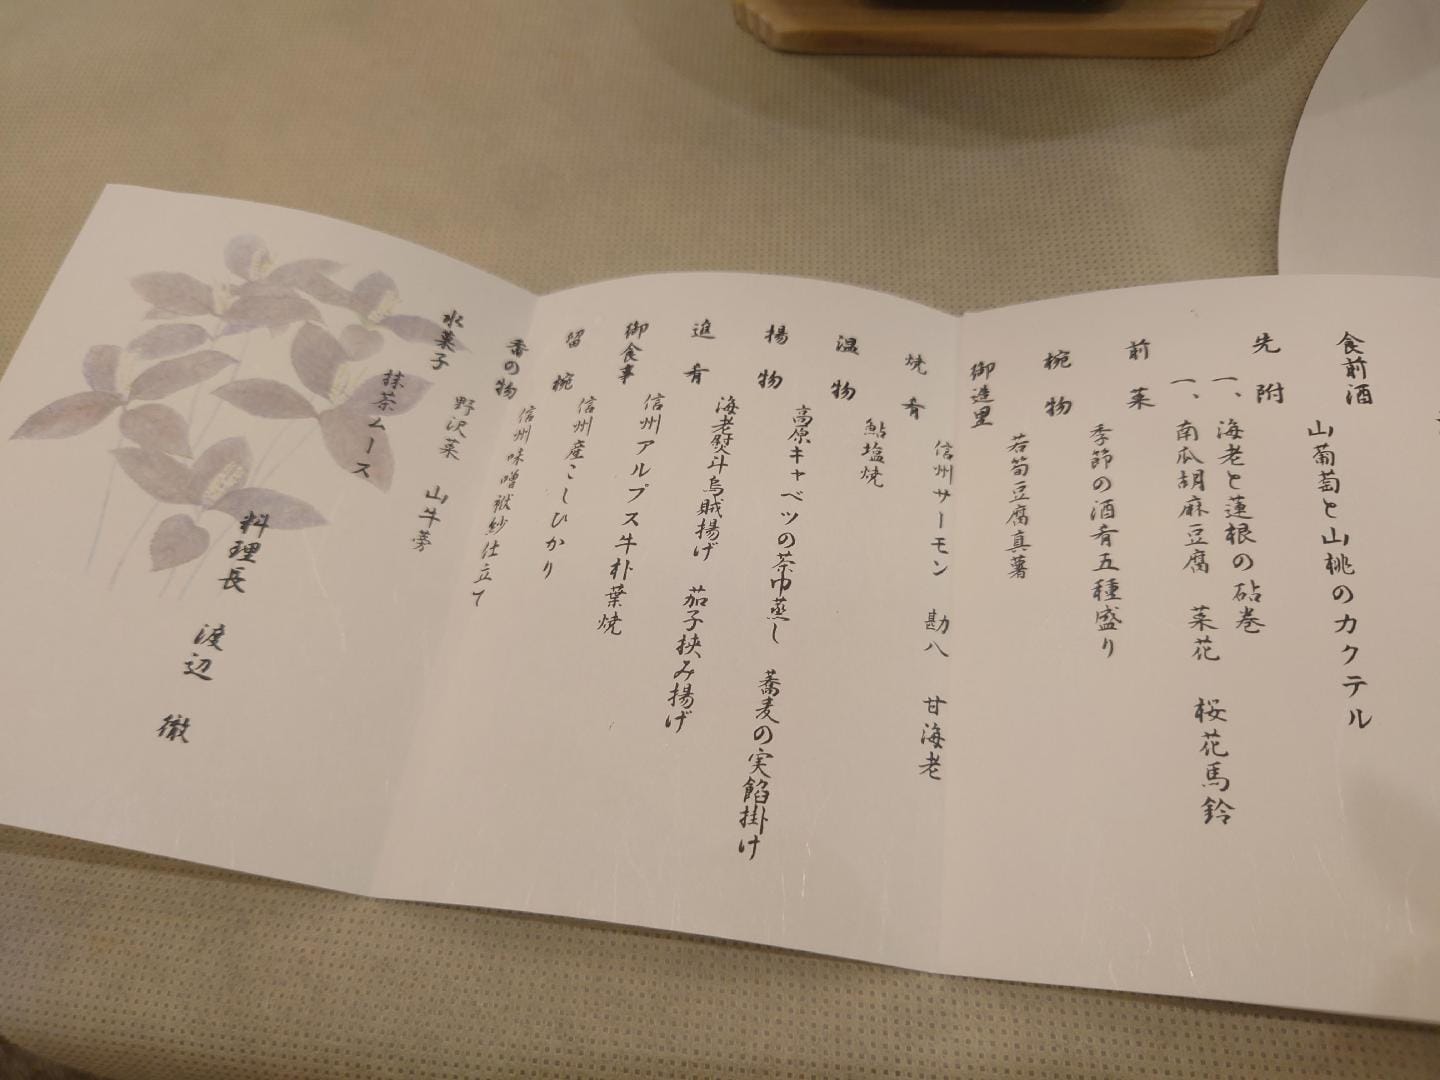 食前酒
山葡萄と山桃のカクテル
先附
一、海老と蓮根の砧巻
一、南瓜胡麻豆腐　菜花　桜花馬鈴
前菜
季節の酒肴五種盛り
椀物
若筍豆腐真薯
御造里
信州サーモン　勘八　甘海老
焼肴
鮎塩焼
温物
高原キャベツの茶巾蒸し　蕎麦の実餡掛け
揚物
海老熨斗烏賊揚げ　茄子挟み揚げ
進肴
信州アルプス牛朴葉焼
御食事
信州産こしひかり
留椀
信州味噌袱紗仕立て
香の物
野沢菜　山牛蒡
水菓子
抹茶ムース
料理長　渡辺　徹